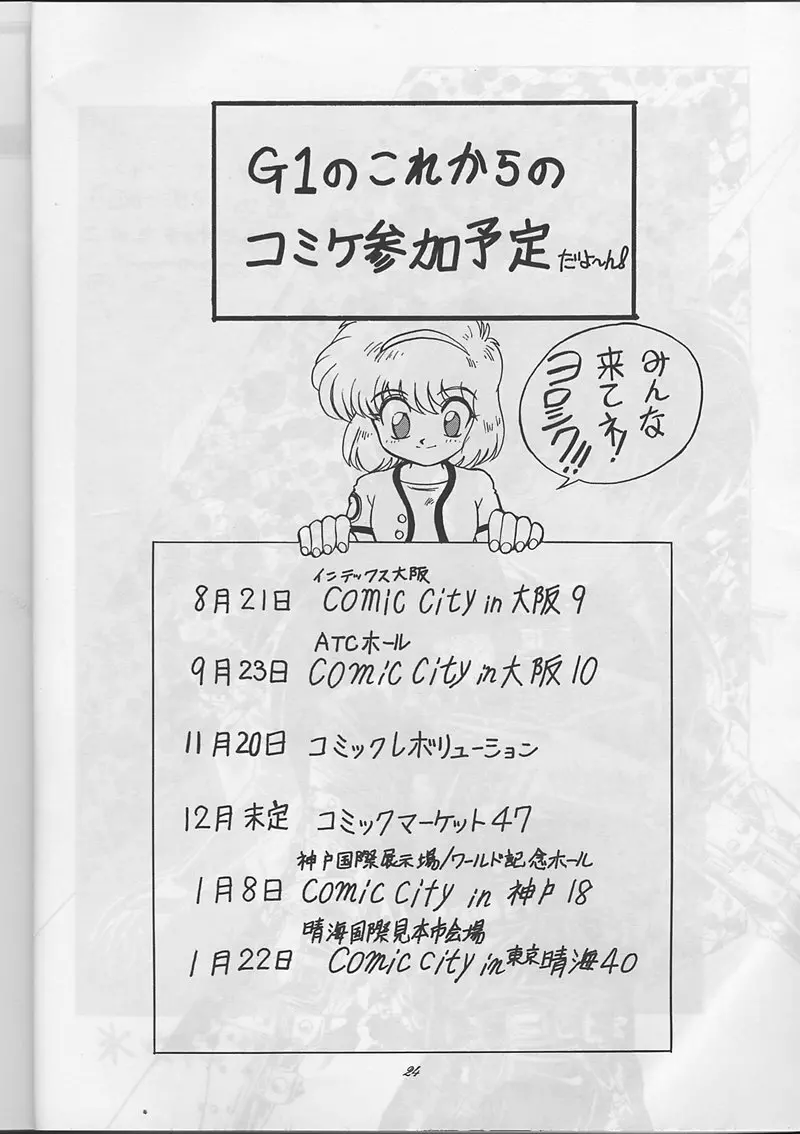 G1のこれからの
コミケ参加予定だよ〜ん!
みんな
来てネ!
ヨロシク!!
インデックス大阪
8月21日 Comic City in 大阪9
ATCホール
9月23日 Comic City in 大阪10
11月20日 コミックレボリューション
12月 未定 コミックマーケット47
神戸国際展示場/ワールド記念ホール
1月8日 Comic City in 神戸18
晴海国際見本市会場
1月22日 Comic City in 東京晴海40
24